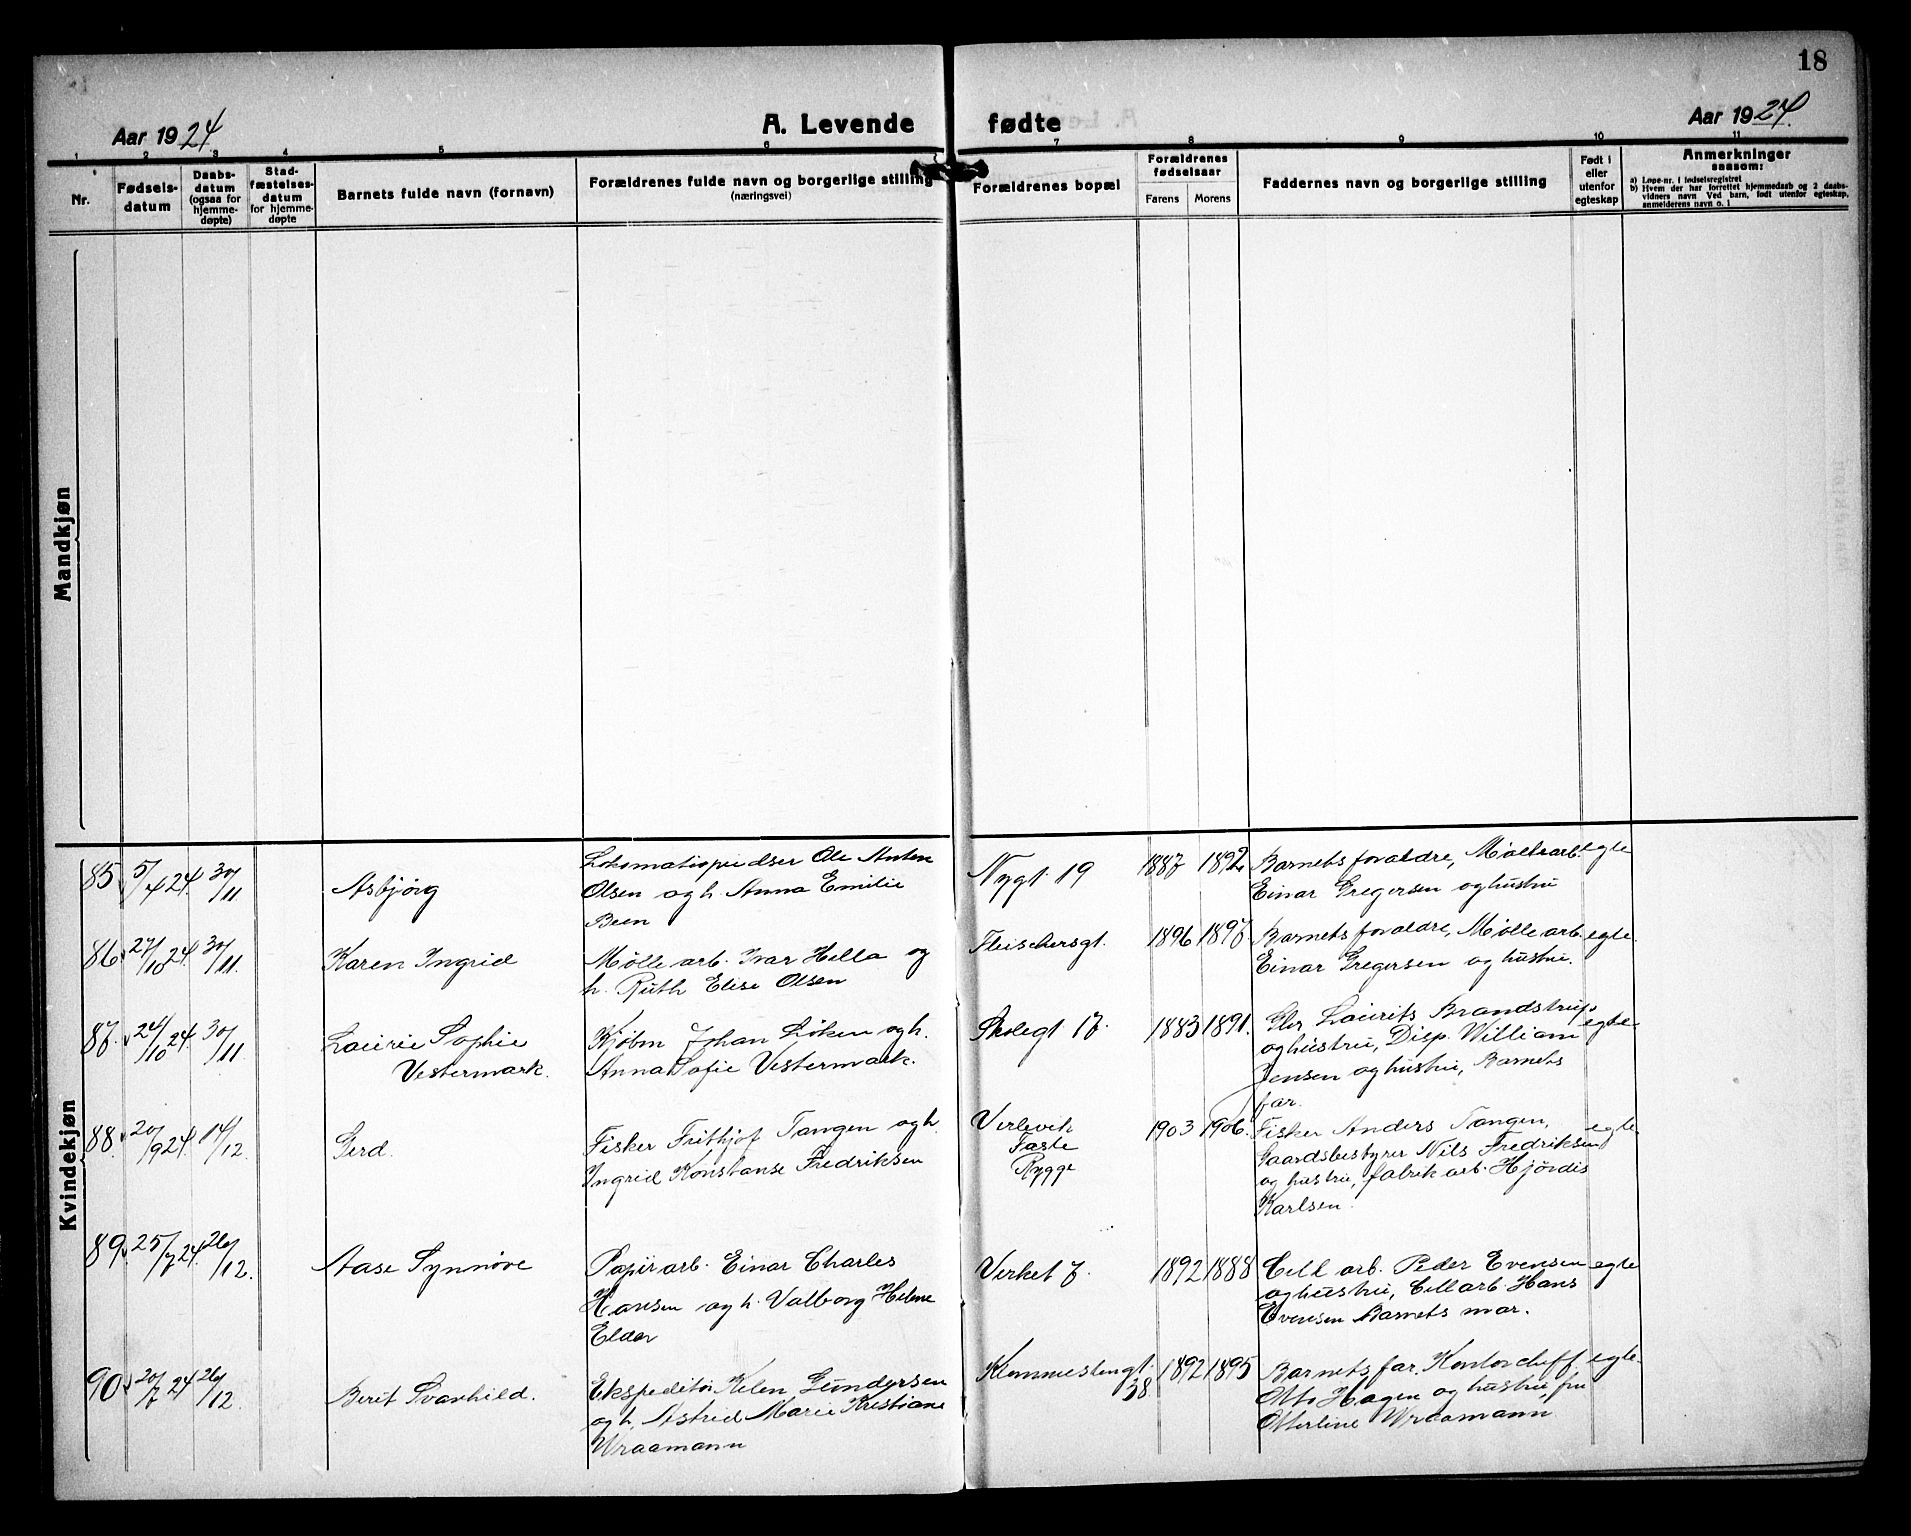 18
Aar 1924.
A. Levende fødte
Aar 1924.
1 2 3 4 5 6 7 8 9 10 11
Nr.
Fødsels-
datum
Daabs-
datum
(ogsaa for
hjemme-
døpte)
Stad-
fæstelses-
datum
for hjemme-
døpte
Barnets fulde navn (fornavn)
Forældrenes fulde navn og borgerlige stilling
(næringsvei)
Forældrenes bopæl
Forældrenes
fødselsaar
Farens Morens
Faddernes navn og borgerlige stilling
Født i
eller
utenfor
egteskap
Anmerkninger
saasom:
a) Løpe-nr. i fødselsregistret
b) Hvem der har forrettet hjemmedaab og 2 daabs-
vidners navn Ved barn, født utenfor egteskap,
anmelderens navn o. l
Mandkjøn
Kvindekjøn
85 5/4 24. 30/11
Asbjörg
Ole Anton
Olsen og h. Anna Emilie
Been
Nygt. 19
1887 1892
Barnets foraldre, Møllearb.
Einar Gregersen og hustru
egte
86 27/10 24. 30/11
Karen Ingrid
Mølle arb. Ivar Hella og
h. Ruth Elise Olsen
Fleischersgt.
1896 1897.
Barnets foraldre, Mølle arb.
Einar Gregersen og hustru.
egte.
87. 24/10 24. 30/11
Laurie Sophie
Vestermark.
Kjøbm Johan Løken og h.
Anna Sofie Vestermark.
Skolegt 17.
1883 1891.
Laurits Brandstrup
og hustru, Disp. William
Jensen og hustru, Barnets
far.
egte.
88. 20/9 24. 14/12.
Gerd.
Fisker Frithjof Tangen og h.
Ingrid Konstanse Fredriksen
Verlevik
Rygge
1903 1906.
Fisker Anders Tangen,
Gaardsbestyrer Nils Fredriksen
og hustru, fabrik arb. Hjördis
Karlsen.
egte
89. 25/7 24. 26/12.
Aase Synnöve
Papirarb. Einar Charles
Hansen og h. Valborg Helene
Elder
Verket 7.
1892 1888
Cell arb. Peder Evensen
og hustru, Cellarb Hans
Evensen Barnets mor.
egte
90. 20/7 24 26/12.
Berit Svanhild.
Ekspeditör Gundersen
og h. Astrid Marie Kristiane
Wraamann
38
1892 1895
Barnets far. Kontorcheff
Otto Hagen og hustru, fru
Otterline Wraamann
egte.